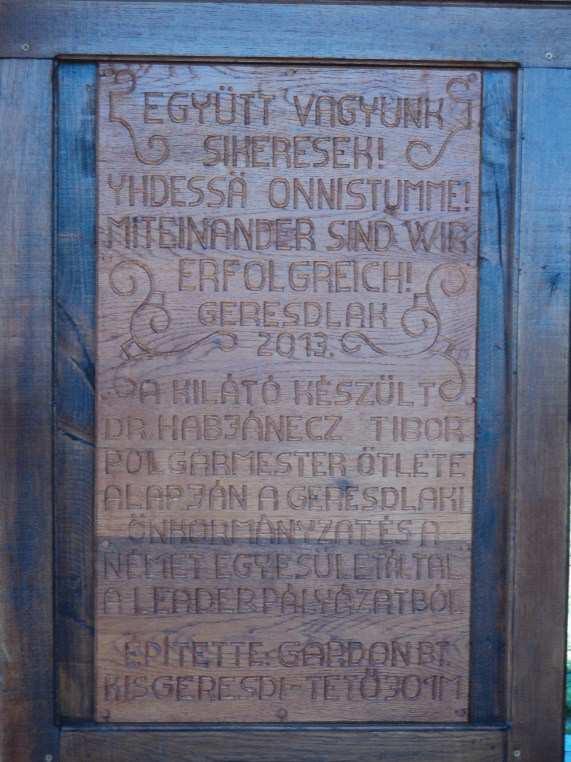 EGYÜTT VAGYUNK
SIKERESEK!
YHDESSÄ ONNISTUMME!
MITEINANDER SIND WIR
ERFOLGREICH!
GERESDLAK
2013.
A KILÁTÓ KÉSZÜLT
DR. HABJÁNECZ TIBOR
POLGÁRMESTER ÖTLETE
ALAPJÁN A GERESDLAKI
ÖNKORMÁNYZAT ÉS A
NÉMET EGYESÜLET ÁLTAL
A LEADER PÁLYÁZATBÓL
ÉPÍTETTE: GÁRDON BT.
KISGERESDI-TETŐ 301M